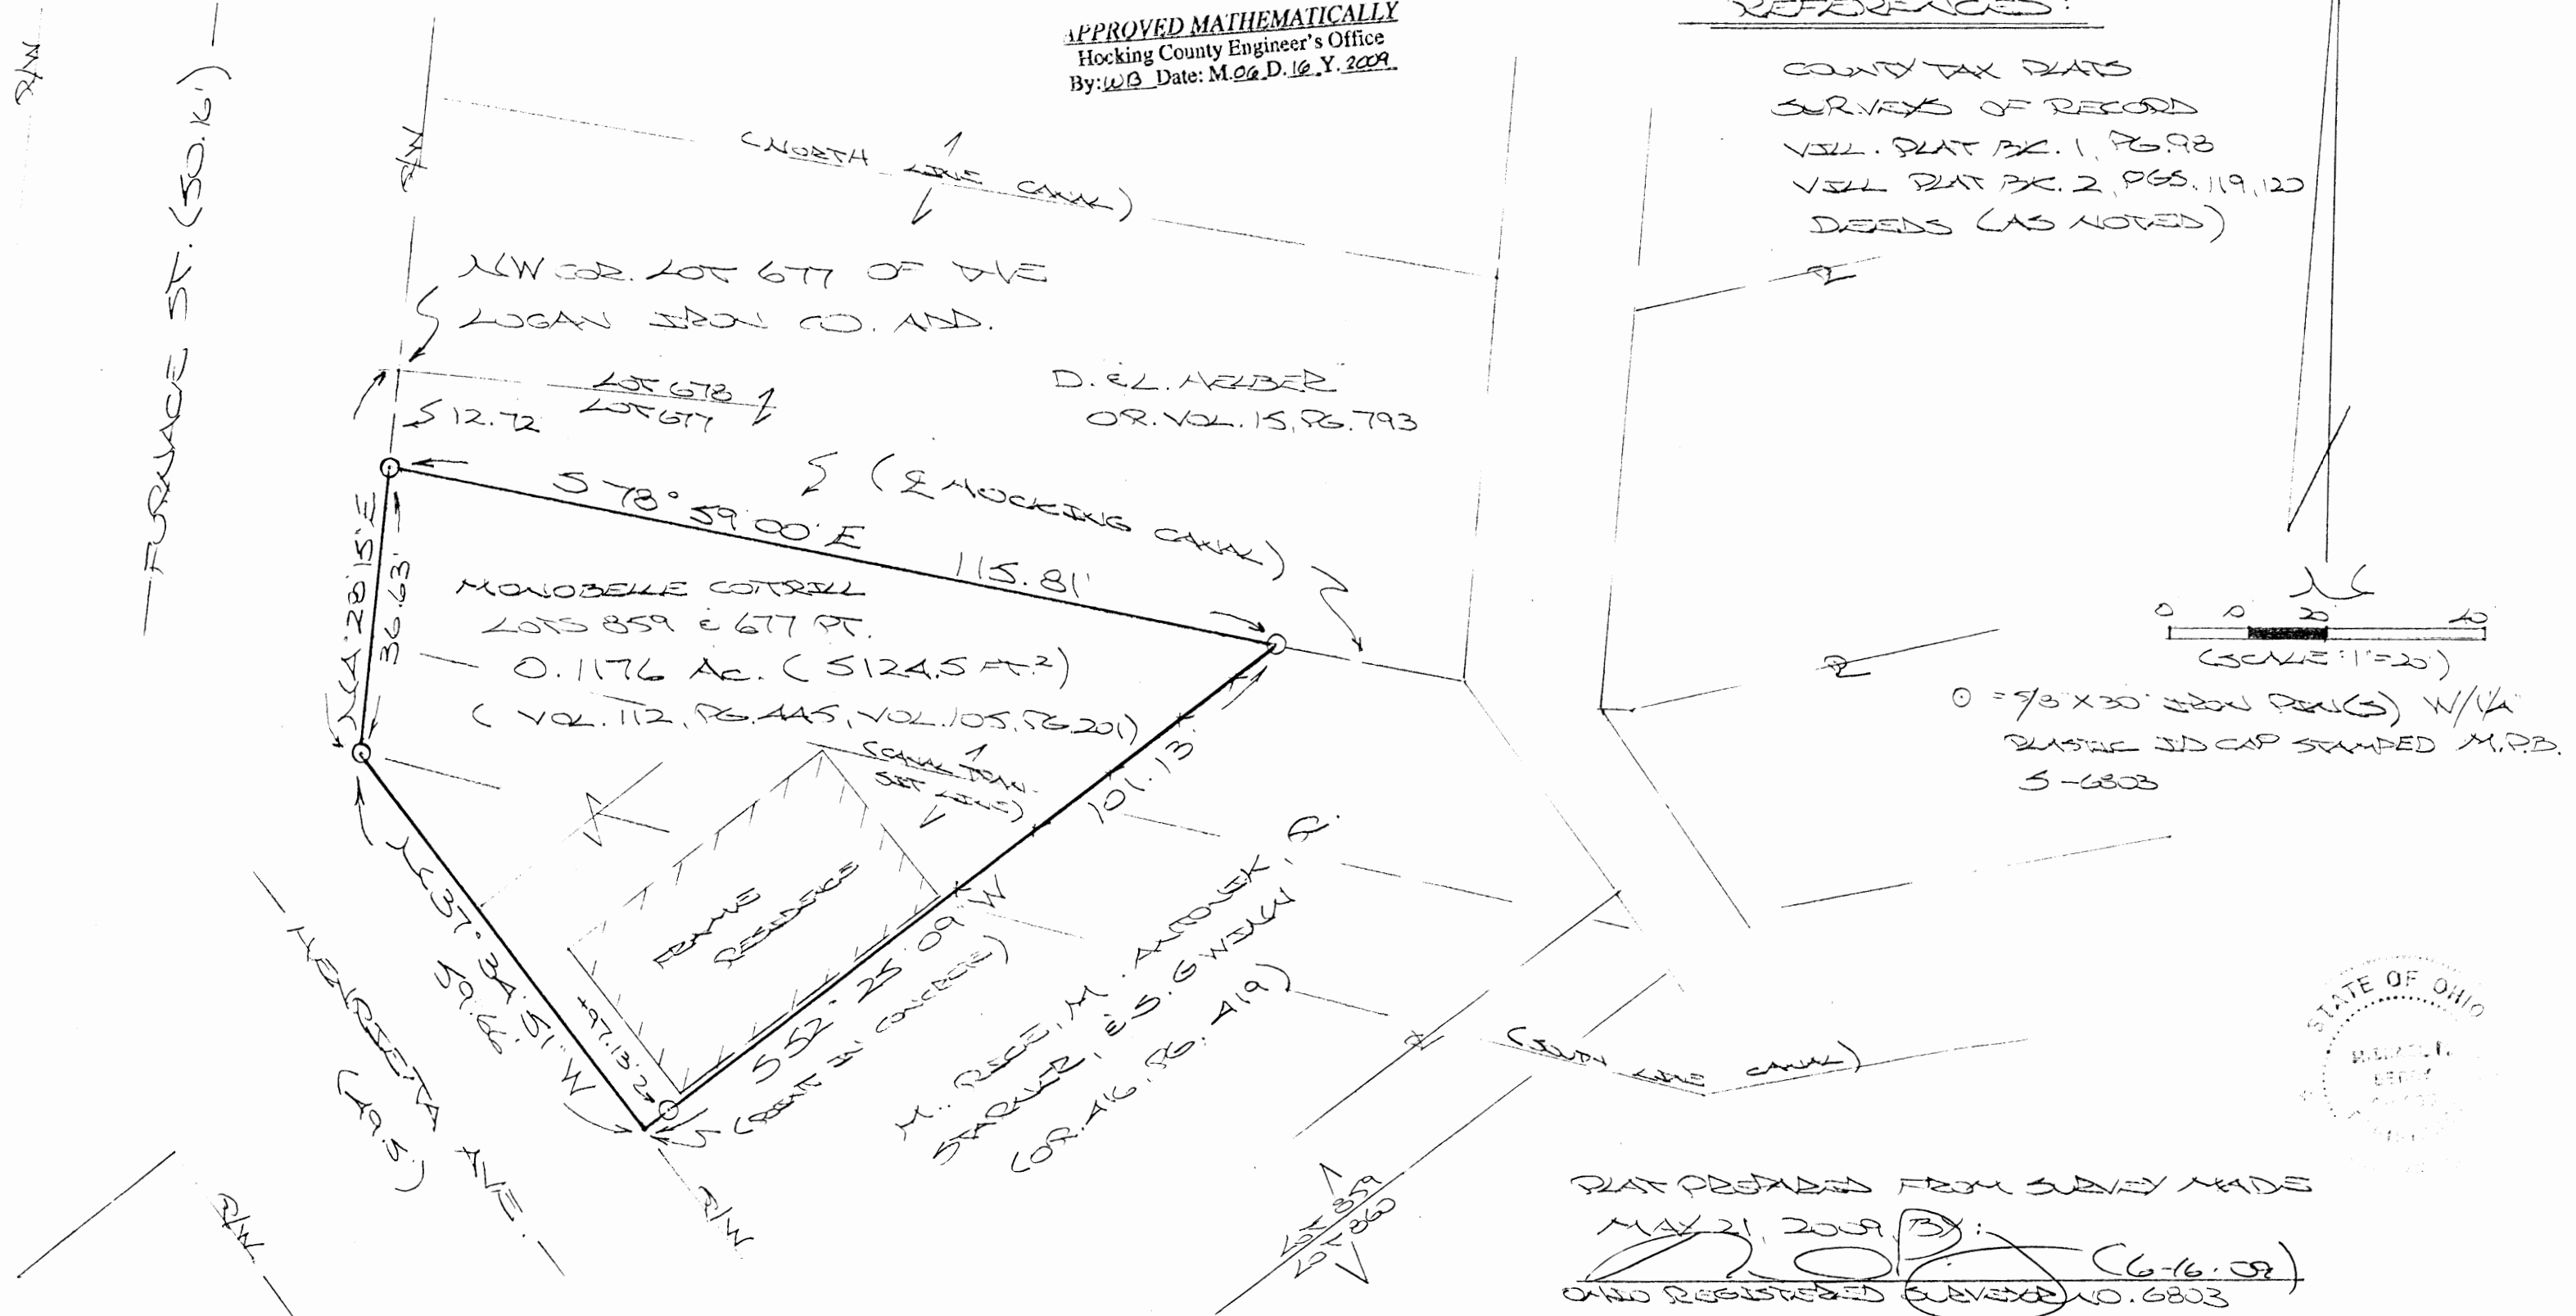 APPROVED MATHEMATICALLY
Hocking County Engineer's Office
By: WB Date: M.06 D.16 Y.2009
REFERENCES:
COUNTY TAX PLATS
SURVEYS OF RECORD
VILL. PLAT BK. 1, PG. 98
VILL PLAT BK. 2, PGS. 119, 120
DEEDS (AS NOTED)
R/W
FURNACE ST. (50.16')
R/W
(NORTH LINE CANAL)
NW COR. LOT 677 OF THE
LOGAN IRON CO. ADD.
LOT 678
LOT 677
12.72
D. & L. HELBER
OR. VOL. 15, PG. 793
(℄ HOCKING CANAL)
S 78° 59' 00" E
115.81'
N 4° 28' 15" E
36.63'
MONOBELLE COTTRILL
LOTS 859 & 677 PT.
0.1176 Ac. (5124.5 FT.²)
(VOL. 112, PG. 445, VOL. 105, PG. 201)
(CANAL TRAN-
SIT LINE)
101.13'
FRAME
RESIDENCE
S 52° 25' 09" W
(POINT IN CONCRETE)
N 37° 34' 51" W
59.66'
97.13'
HENRIETTA AVE.
(49.5')
R/W
R/W
M. RICE, M.
STARNER, & S. GWINN
(OR. 416, PG. 419)
(SOUTH LINE CANAL)
LOT 859
LOT 860
℄
℄
℄
N
0 10 20 40
(SCALE: 1"=20')
⊙ = 5/8" X 30" IRON PIN(S) W/ 1 1/4"
PLASTIC ID CAP STAMPED M.P.B.
S-6803
STATE OF OHIO
PLAT PREPARED FROM SURVEY MADE
MAY 21, 2009, BY:
(6-16-09)
OHIO REGISTERED SURVEYOR NO. 6803